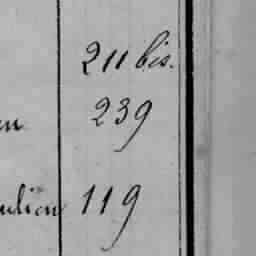 211 bis.
en 239
ulien 119